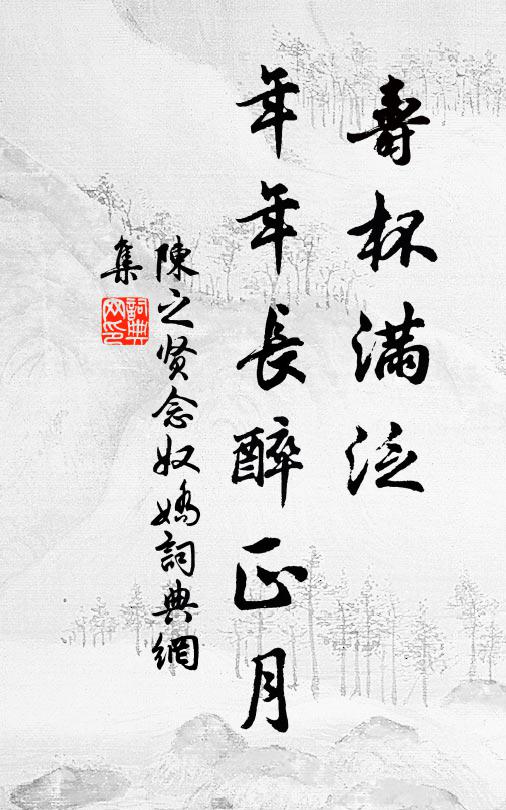 壽杯滿泛
年年長醉正月
陳之贤念奴嬌詞典網
集
詞典网印